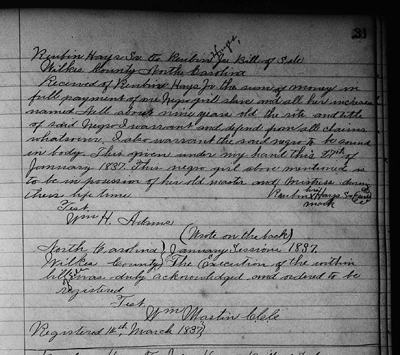 31
Reubin Hays Sr to Reubin Hays Jr Bill of Sale
Wilkes County North Carolina
Received of Reubin Hays Jr the sum of money in
full payment of one Negro girl slave and all her increase
named Hell about nine years old the rite and title
of said Negro I warrant and defend from all claims
whatsoever. I also warrant the said negro to be sound
in body. This given under my hand this 27th of
January 1837. This negro girl above mentioned is
to be in possesion of her old master and Mistress during
there life time
Reubin his Hays Sr
mark
Test
Wm H. Adams
(Wrote on the back)
North Carolina) January Sessions 1837.
Wilkes County) The Execution of the within
bill was duly acknowledged and ordered to be
registered
Test
Wm Martin Clk
Registered 14th, March 1837)